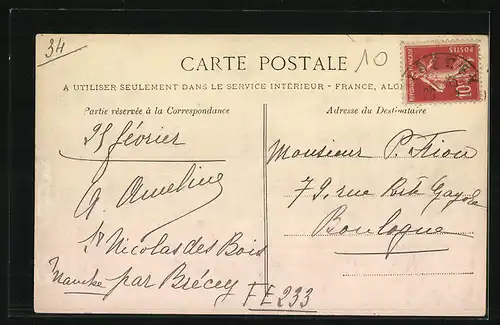 34
10
CARTE POSTALE
A UTILISER SEULEMENT DANS LE SERVICE INTÉRIEUR - FRANCE, ALG
Partie réservée à la Correspondance
Adresse du Destinataire
POSTES
10
25 février
A. Ameline
St Nicolas des Bois
Manche par Brécey
FE233
Monsieur P. Fion
79, rue Bté Gayole
Boulogne